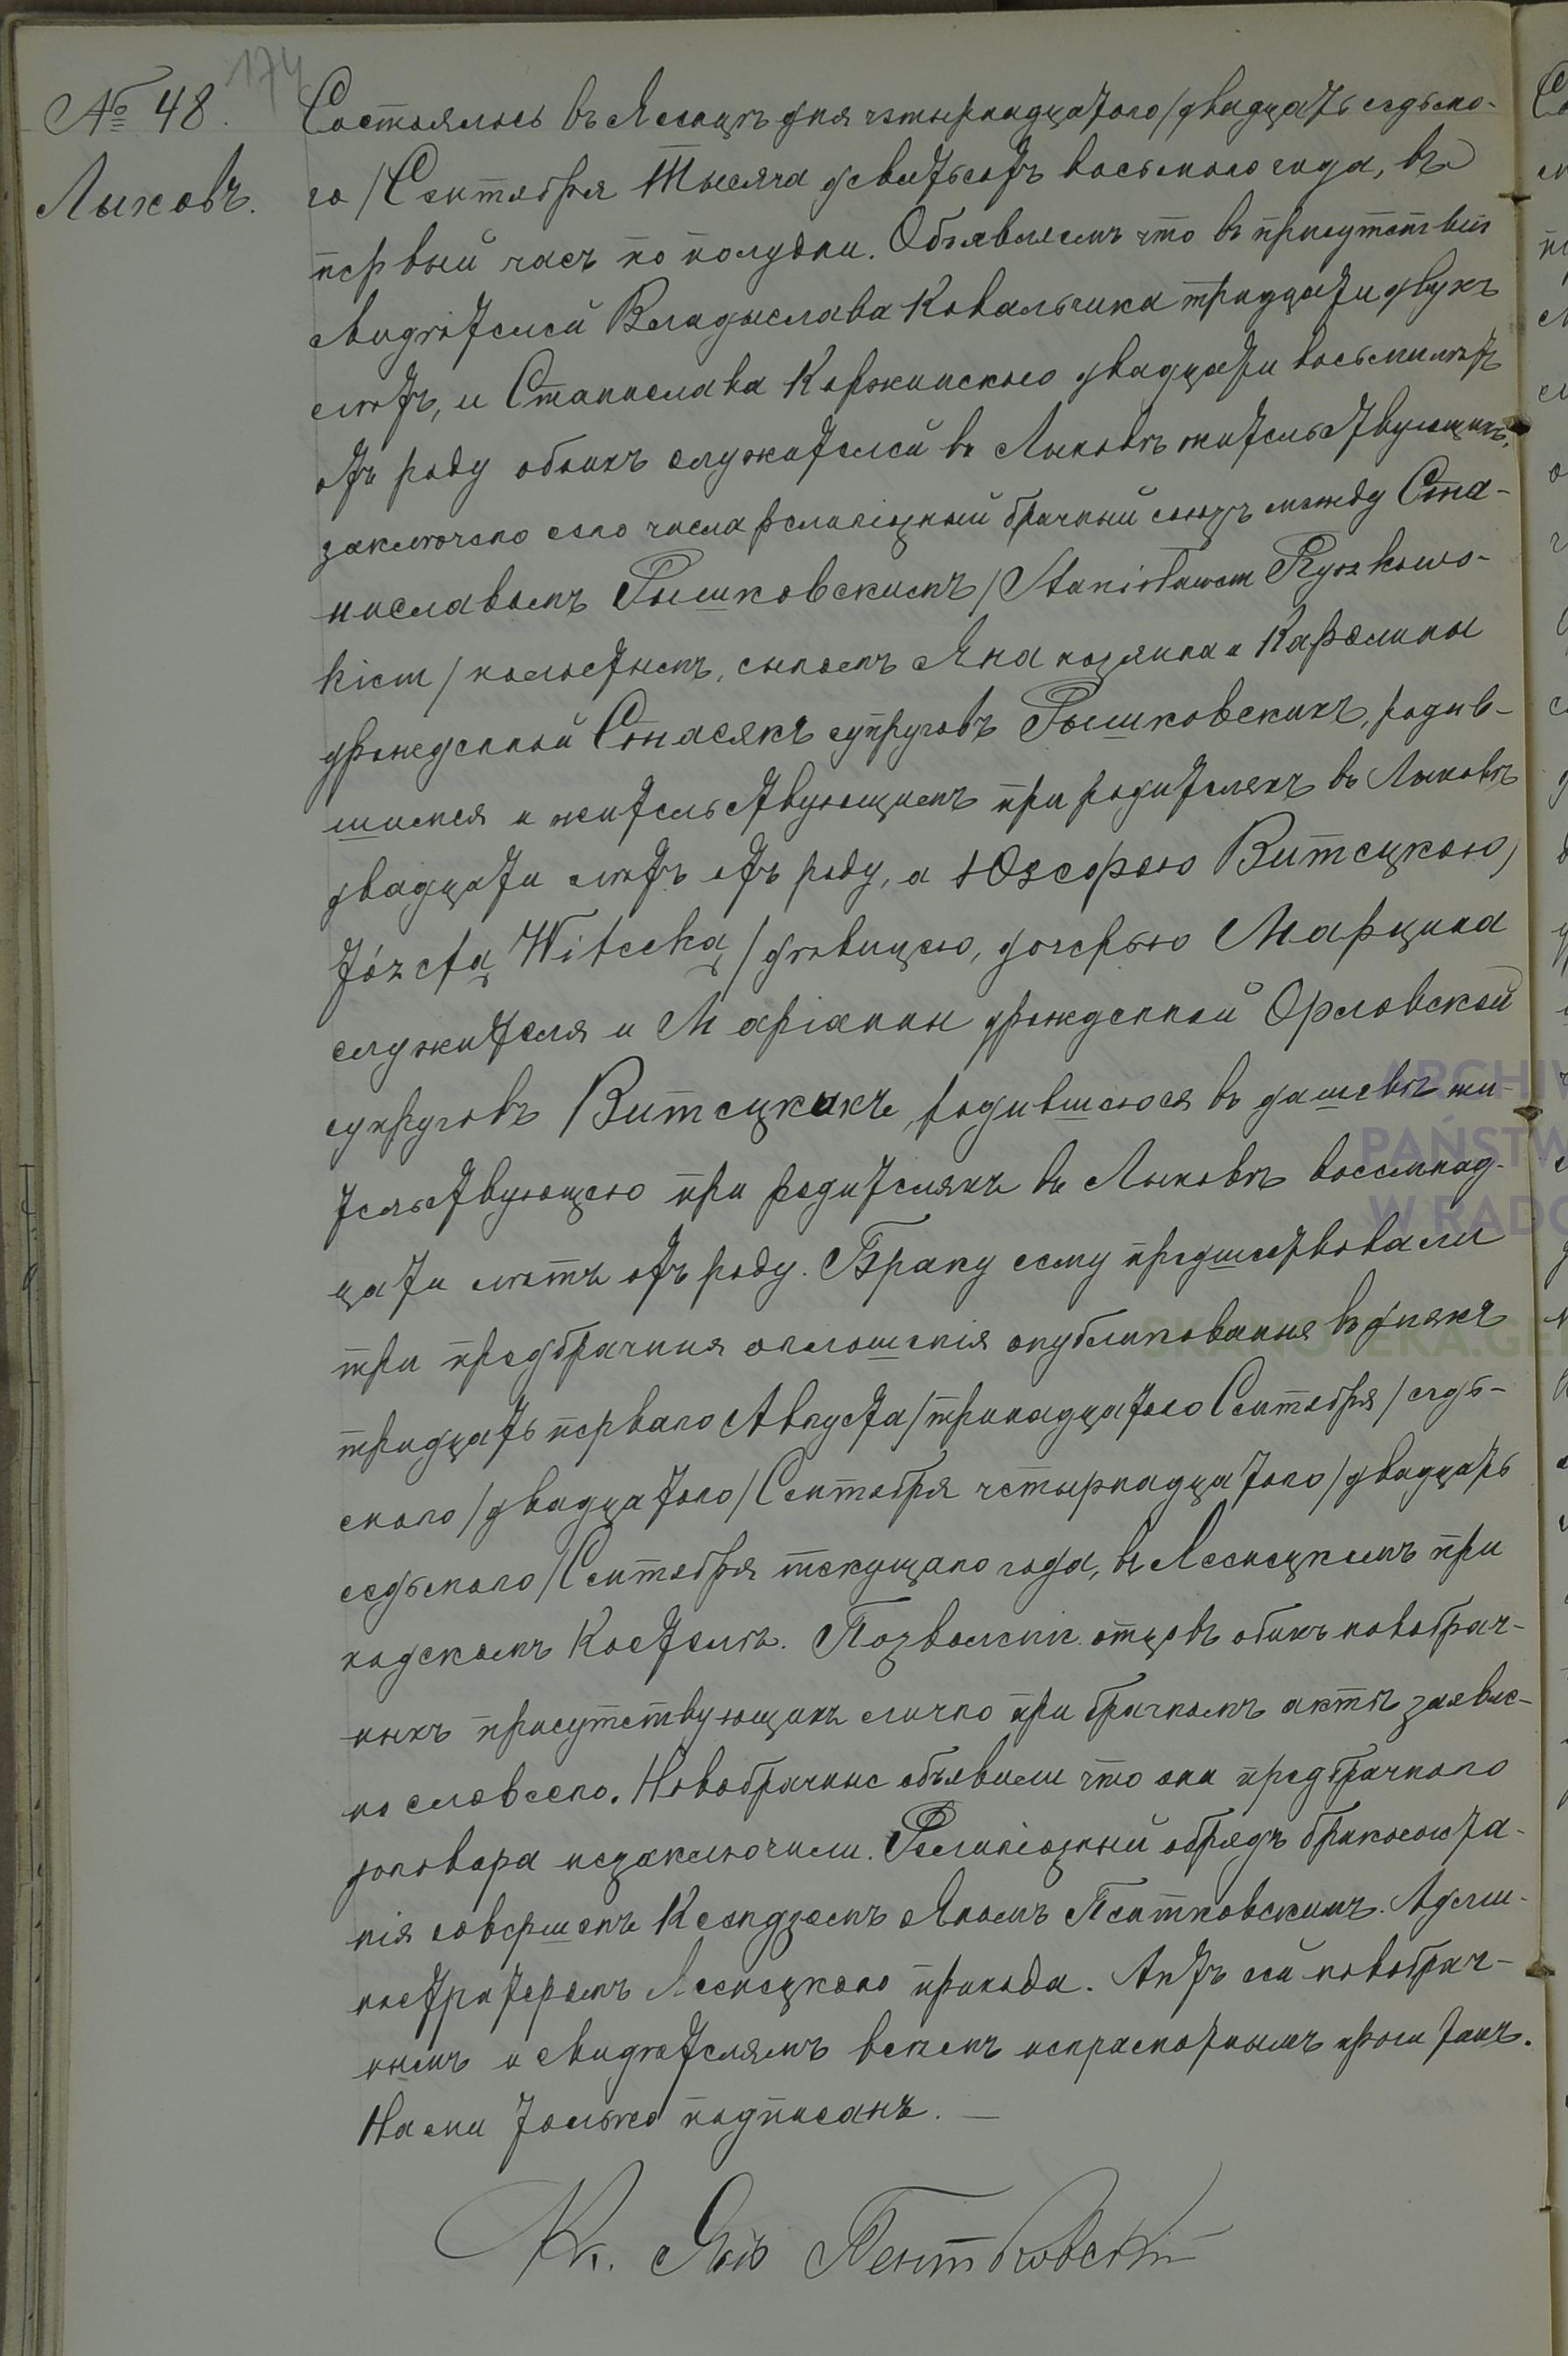 174
№ 48.
Лыковъ.
Состоялось въ Лесецъ дня четырнадцатаго /двадцать седьмо-
го/ Сентября Тысяча девятьсотъ восьмого года, въ
первый часъ по полудни. Объявляемъ что въ присутствіи
свидѣтелей Владыслава Ковальчика тридцати двухъ
лѣтъ, и Станислава Коржинскаго двадцати восьми лѣтъ
отъ роду обоихъ служителей въ Лыковѣ жительствующихъ,
заключено сего числа религіозный брачный союзъ между Ста-
ниславомъ Рышковскимъ /Stanisławem Ryszkows-
kiem/ холостымъ, сыномъ Яна хозяина и Каролины
урожденной Стасякъ супруговъ Рышковскихъ, родив-
шимся и жительствующимъ при родителяхъ въ Лыковѣ
двадцати лѣтъ отъ роду, а Юзефою Витецкою,
Józefą Witecką / дѣвицею, дочерью Марцина
служителя и Маріанны урожденной Орловской
супруговъ Витецкихъ, родившеюся въ Дашевѣ жи-
тельствующею при родителяхъ въ Лыковѣ восемнад-
цати лѣтъ отъ роду. Браку сему предшествовали
три предбрачныя оглошенія опубликованыя въ дняхъ
тридцать перваго Августа /тринадцатого Сентября/ седь-
мого /двадцатого/ Сентября четырнадцатого /двадцать
седьмого/ Сентября текущаго года, въ Лесецкимъ при-
ходскомъ Костелѣ. Позволеніе отцовъ обоихъ новобрач-
ныхъ присутствующихъ лично при брачномъ актѣ заявле-
но словесно. Новобрачные объявили что они предбрачнаго
договора незаключили. Религіозный обрядъ бракосочета-
нія совершенъ Ксендземъ Яномъ Пентковскимъ. Адми-
нистраторомъ Лесецкаго прихода. Актъ сей новобрач-
нымъ и свидѣтелямъ всѣмъ неграмотнымъ прочитанъ.
Нами только подписанъ. —
Кс. Янъ Пентковскій